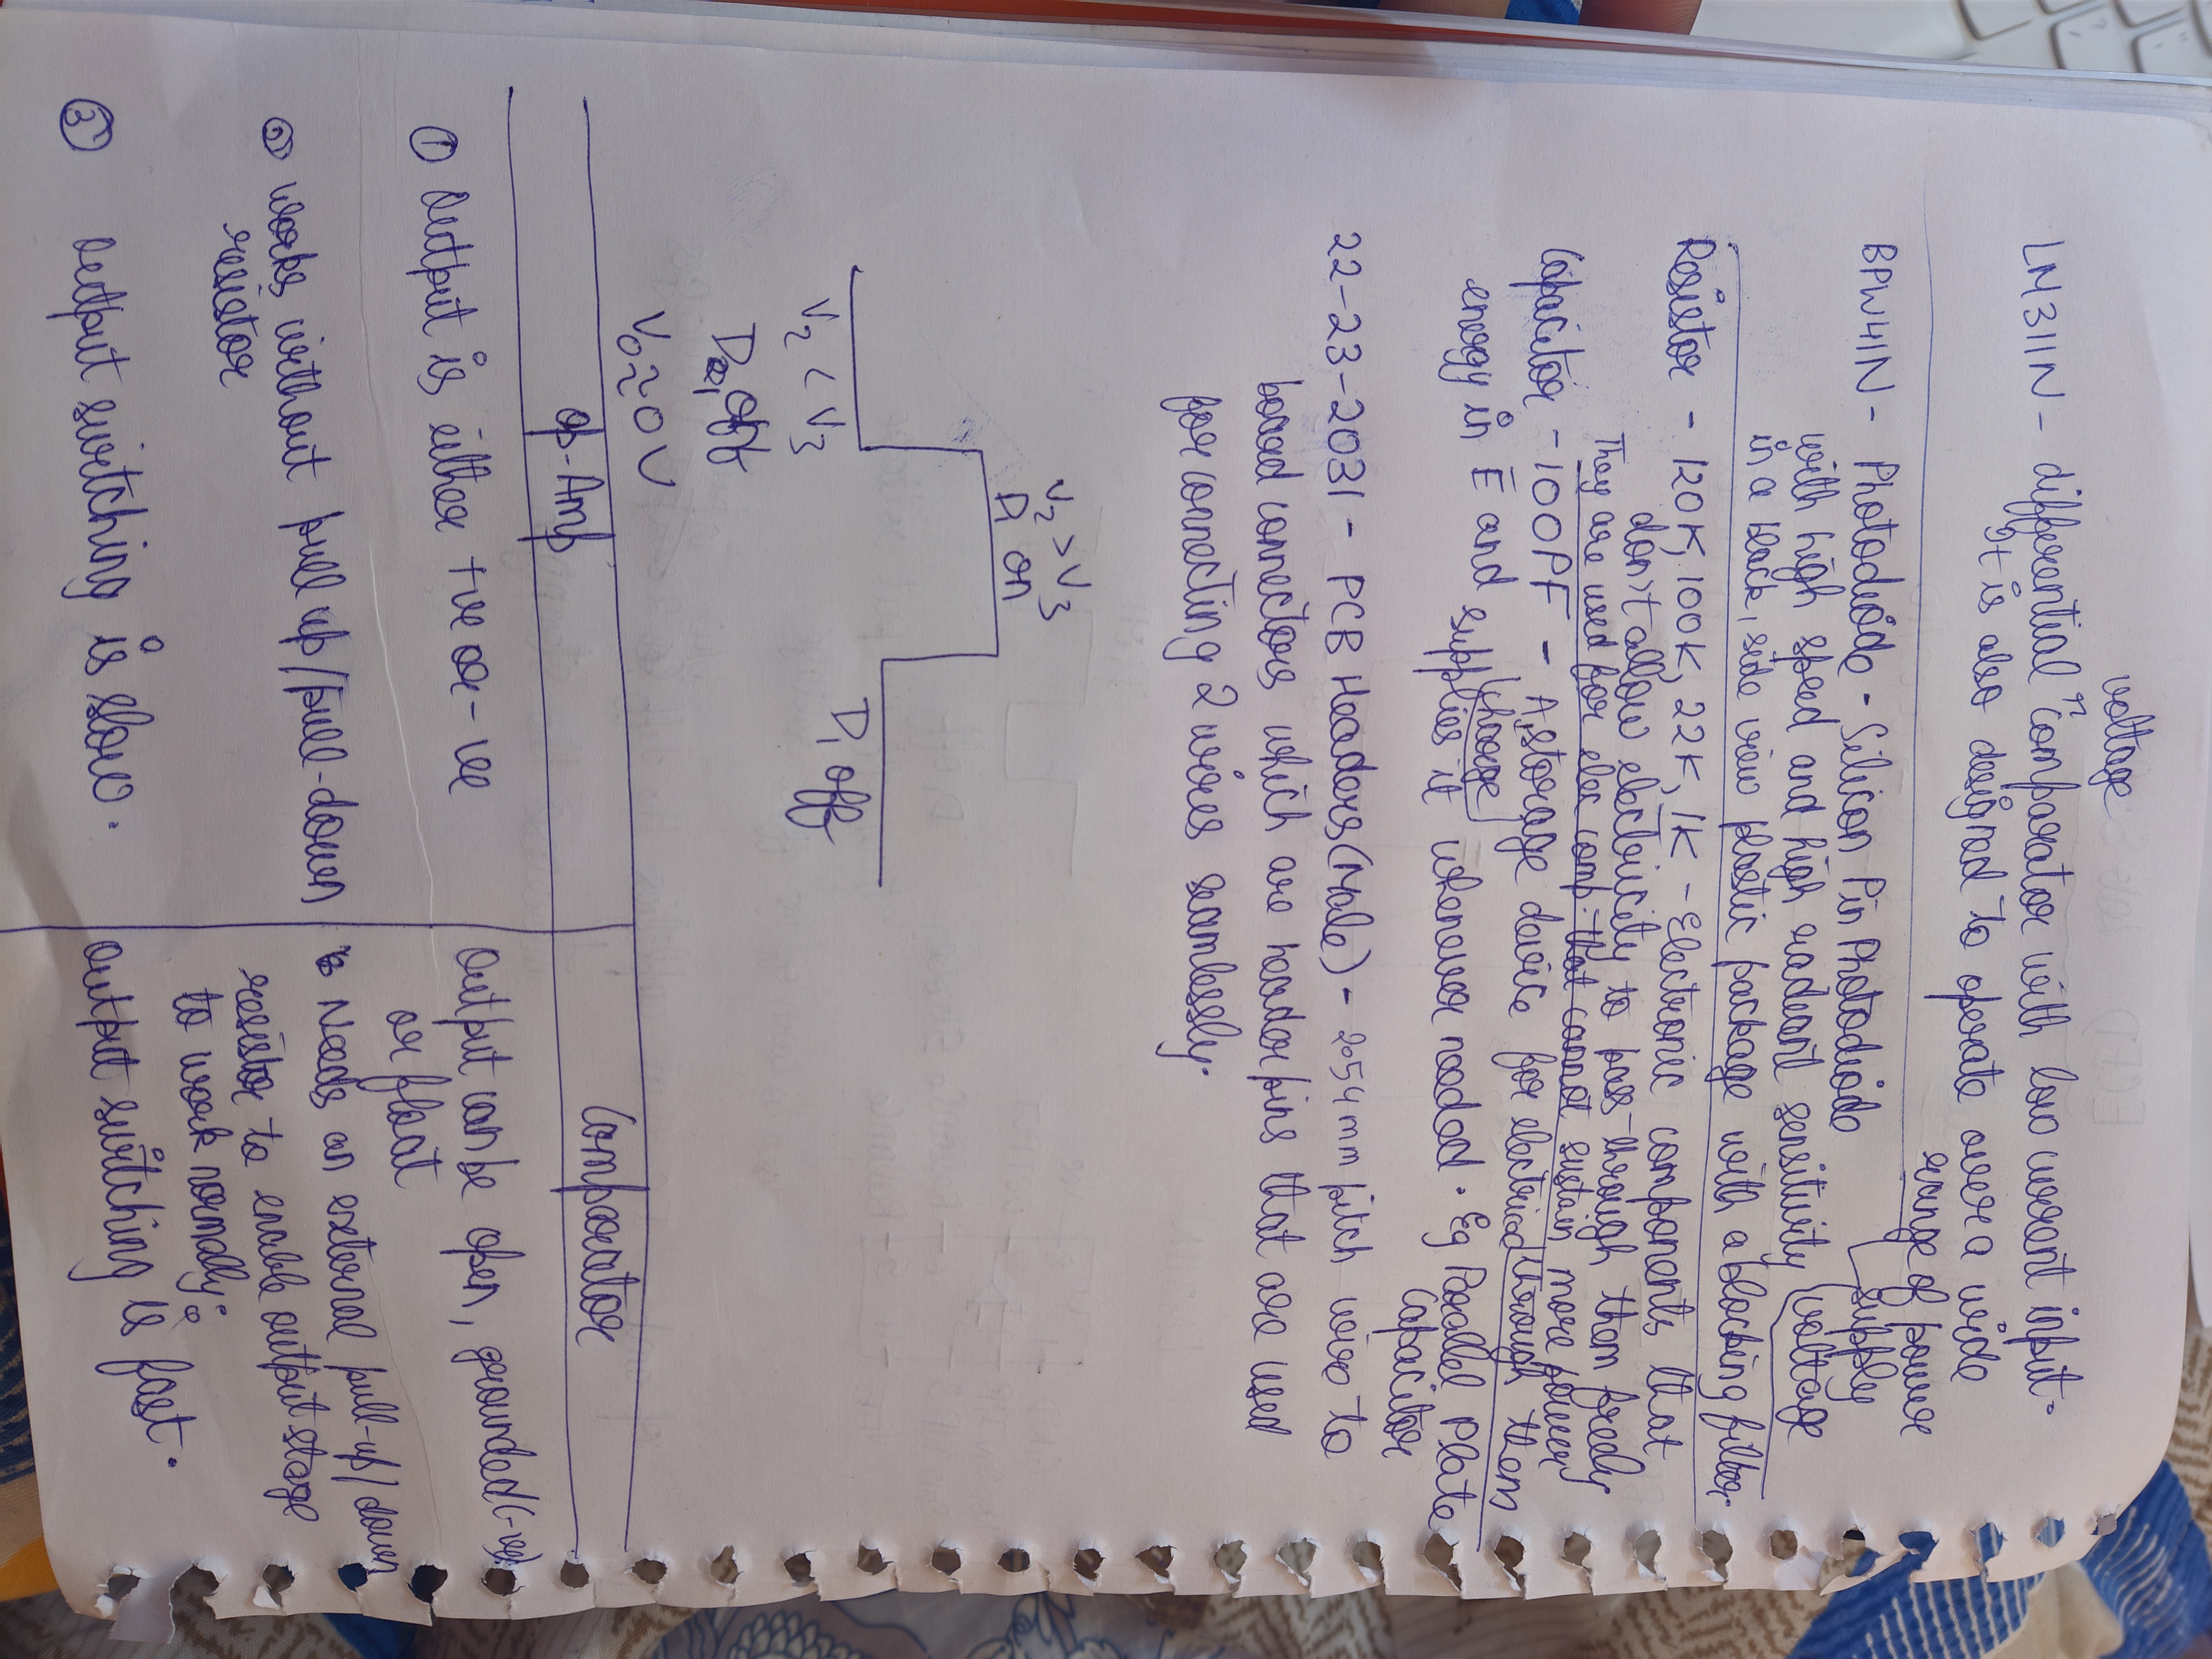 voltage
LM311N - differential ^ Comparator with low current input.
It is also designed to operate over a wide
range of power
supply
voltage
BPW41N - Photodiode - Silicon Pin Photodiode
with high speed and high radiant sensitivity
in a black, side view plastic package with a blocking filter.
Resistor - 120K, 100K, 22K, 1K - Electronic components that
don't allow electricity to pass-through them freely
They are used for elec comp. that cannot sustain more power
through them
Capacitor - 100PF - A storage device for electrical
charge
energy in E and supplies it whenever needed. Eg Parallel Plate
Capacitor
22-23-2031 - PCB Headers (Male) - 2.54mm pitch wire to
board connectors which are header pins that are used
for connecting 2 wires seamlessly.
V2 > V3
D1 on
V2 < V3
D1 off
D1, off
V0 ≃ 0V
Op-Amp
Comparator
① Output is either +ve or -ve
Output can be open, grounded (-ve)
or float
② Works without pull up/pull-down
resistor
Needs an external pull-up/down
resistor to enable output stage
to work normally.
③ Output switching is slow.
Output switching is fast.